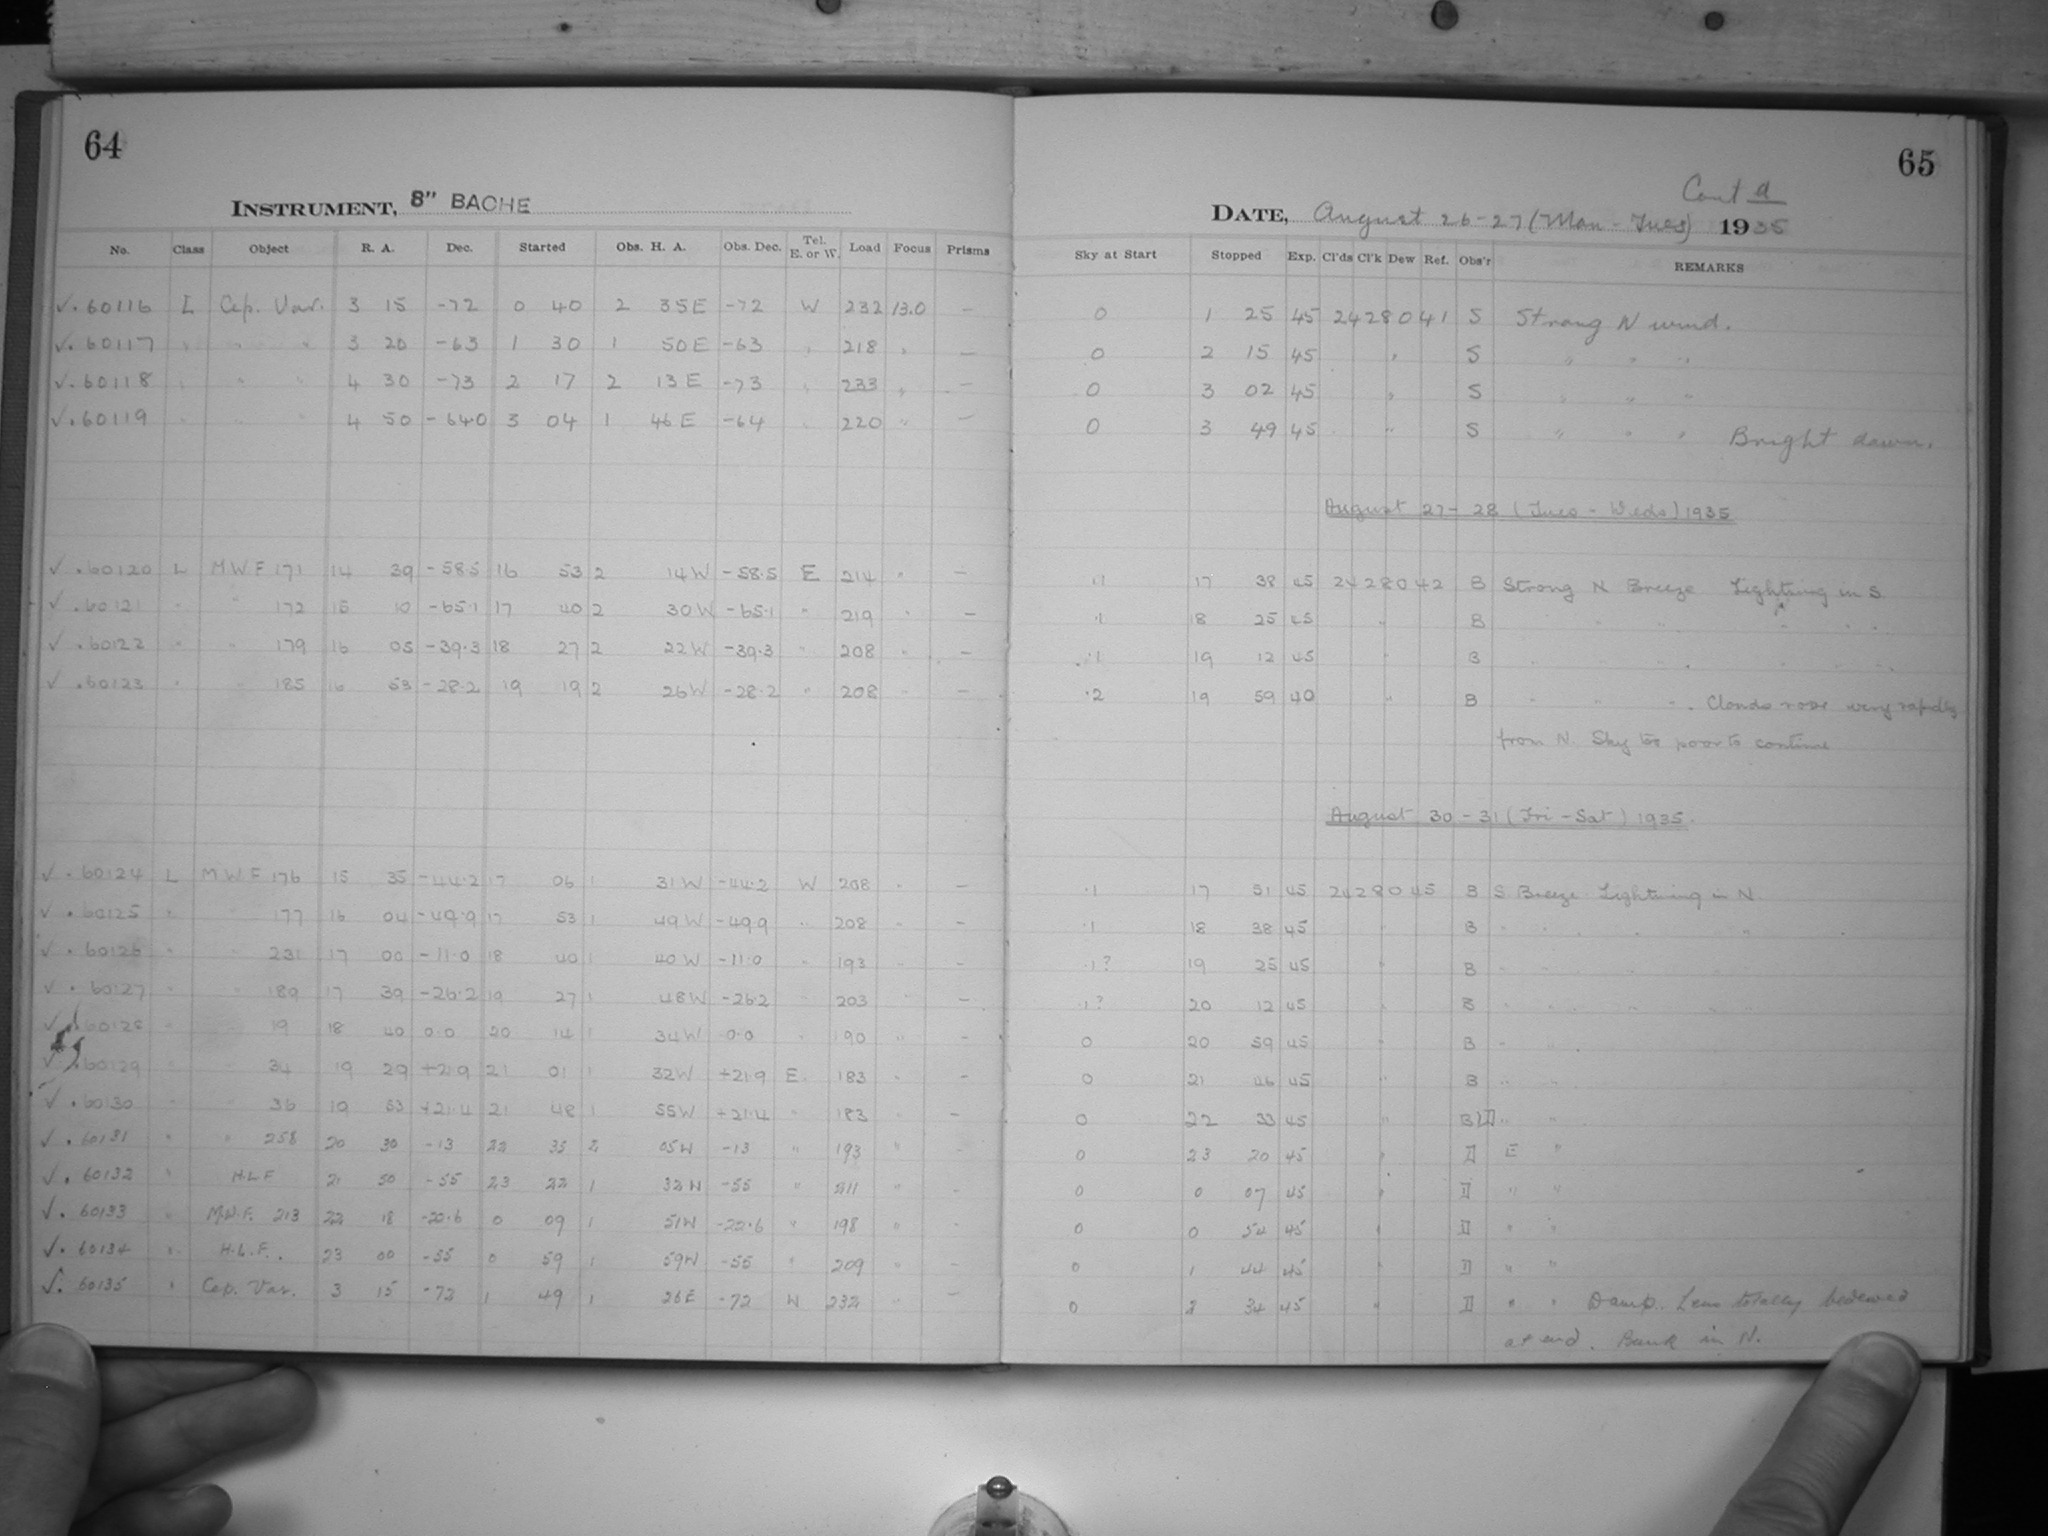 64
INSTRUMENT, 8" BACHE
No. Class Object R. A. Dec. Started Obs. H. A. Obs. Dec. Tel. E. or W. Load Focus Prisms
√. 60116 L Cep. Var. 3 15 -72 0 40 2 35E -72 W 232 13.0 —
√. 60117 " " " 3 20 -63 1 30 1 50E -63 " 218 " —
√. 60118 " " " 4 30 -73 2 17 2 13E -73 " 233 " —
√. 60119 " " " 4 50 -64.0 3 04 1 46E -64 " 220 " —
√ .60120 L MWF 171 14 39 -58.5 16 53 2 14W -58.5 E 214 " —
√ .60121 " " 172 15 10 -65.1 17 40 2 30W -65.1 " 219 " —
√ .60122 " " 179 16 05 -39.3 18 27 2 22W -39.3 " 208 " —
√ .60123 " " 185 16 53 -28.2 19 19 2 26W -28.2 " 208 " —
√ . 60124 L MWF 176 15 35 -44.2 17 06 1 31W -44.2 W 208 " —
√ . 60125 " " 177 16 04 -49.9 17 53 1 49W -49.9 " 208 " —
√ . 60126 " " 231 17 00 -11.0 18 40 1 40W -11.0 " 193 " —
√ . 60127 " " 189 17 39 -26.2 19 27 1 48W -26.2 " 203 " —
√ .60128 " " 19 18 40 0.0 20 14 1 34W 0.0 " 190 " —
√ .60129 " " 34 19 29 21 01 1 32W +21.9 E 183 " —
√ . 60130 " " 36 19 53 +21.4 21 48 1 55W +21.4 " 183 " —
√ . 60131 " " 258 20 30 -13 22 35 2 05W -13 " 193 " —
√ . 60132 " H.L.F 21 50 -55 23 22 1 32W -55 " 211 " —
√ . 60133 " M.W.F. 213 22 18 -22.6 0 09 1 51W -22.6 " 198 " —
√ . 60134 " H.L.F. 23 00 -55 0 59 1 59W -55 " 209 " —
√ . 60135 " Cep. Var. 3 15 -72 1 49 1 26E -72 W 232 " —
65
Cont d
DATE, August 26-27 (Mon - Tues) 1935
Sky at Start Stopped Exp. Cl'ds Cl'k Dew Ref. Obs'r REMARKS
0 1 25 45 2428041 S Strong N wind.
0 2 15 45 " S " " "
0 3 02 45 " S " " "
0 3 49 45 " S " " " Bright dawn.
August 27-28 (Tues - Weds) 1935
.1 17 38 45 2428042 B Strong N Breeze Lightning in S
.1 18 25 45 " B " " " " "
.1 19 12 45 " B " " " " "
.2 19 59 40 " B " " " Clouds rose very rapidly
from N. Sky too poor to continue
August 30-31 (Fri - Sat) 1935.
.1 17 51 45 2428045 B S. Breeze Lightning in N
.1 18 38 45 " B " " " " "
.1? 19 25 45 " B " " " " "
.1? 20 12 45 " B " " " " "
0 20 59 45 " B " "
0 21 46 45 " B " "
0 22 33 45 " B " "
0 23 20 45 " E "
0 0 07 45 " " "
0 0 54 45 " " "
0 1 44 45 " " "
0 2 34 45 " " " Damp. Lens totally bedewed
at end. Bank in N.